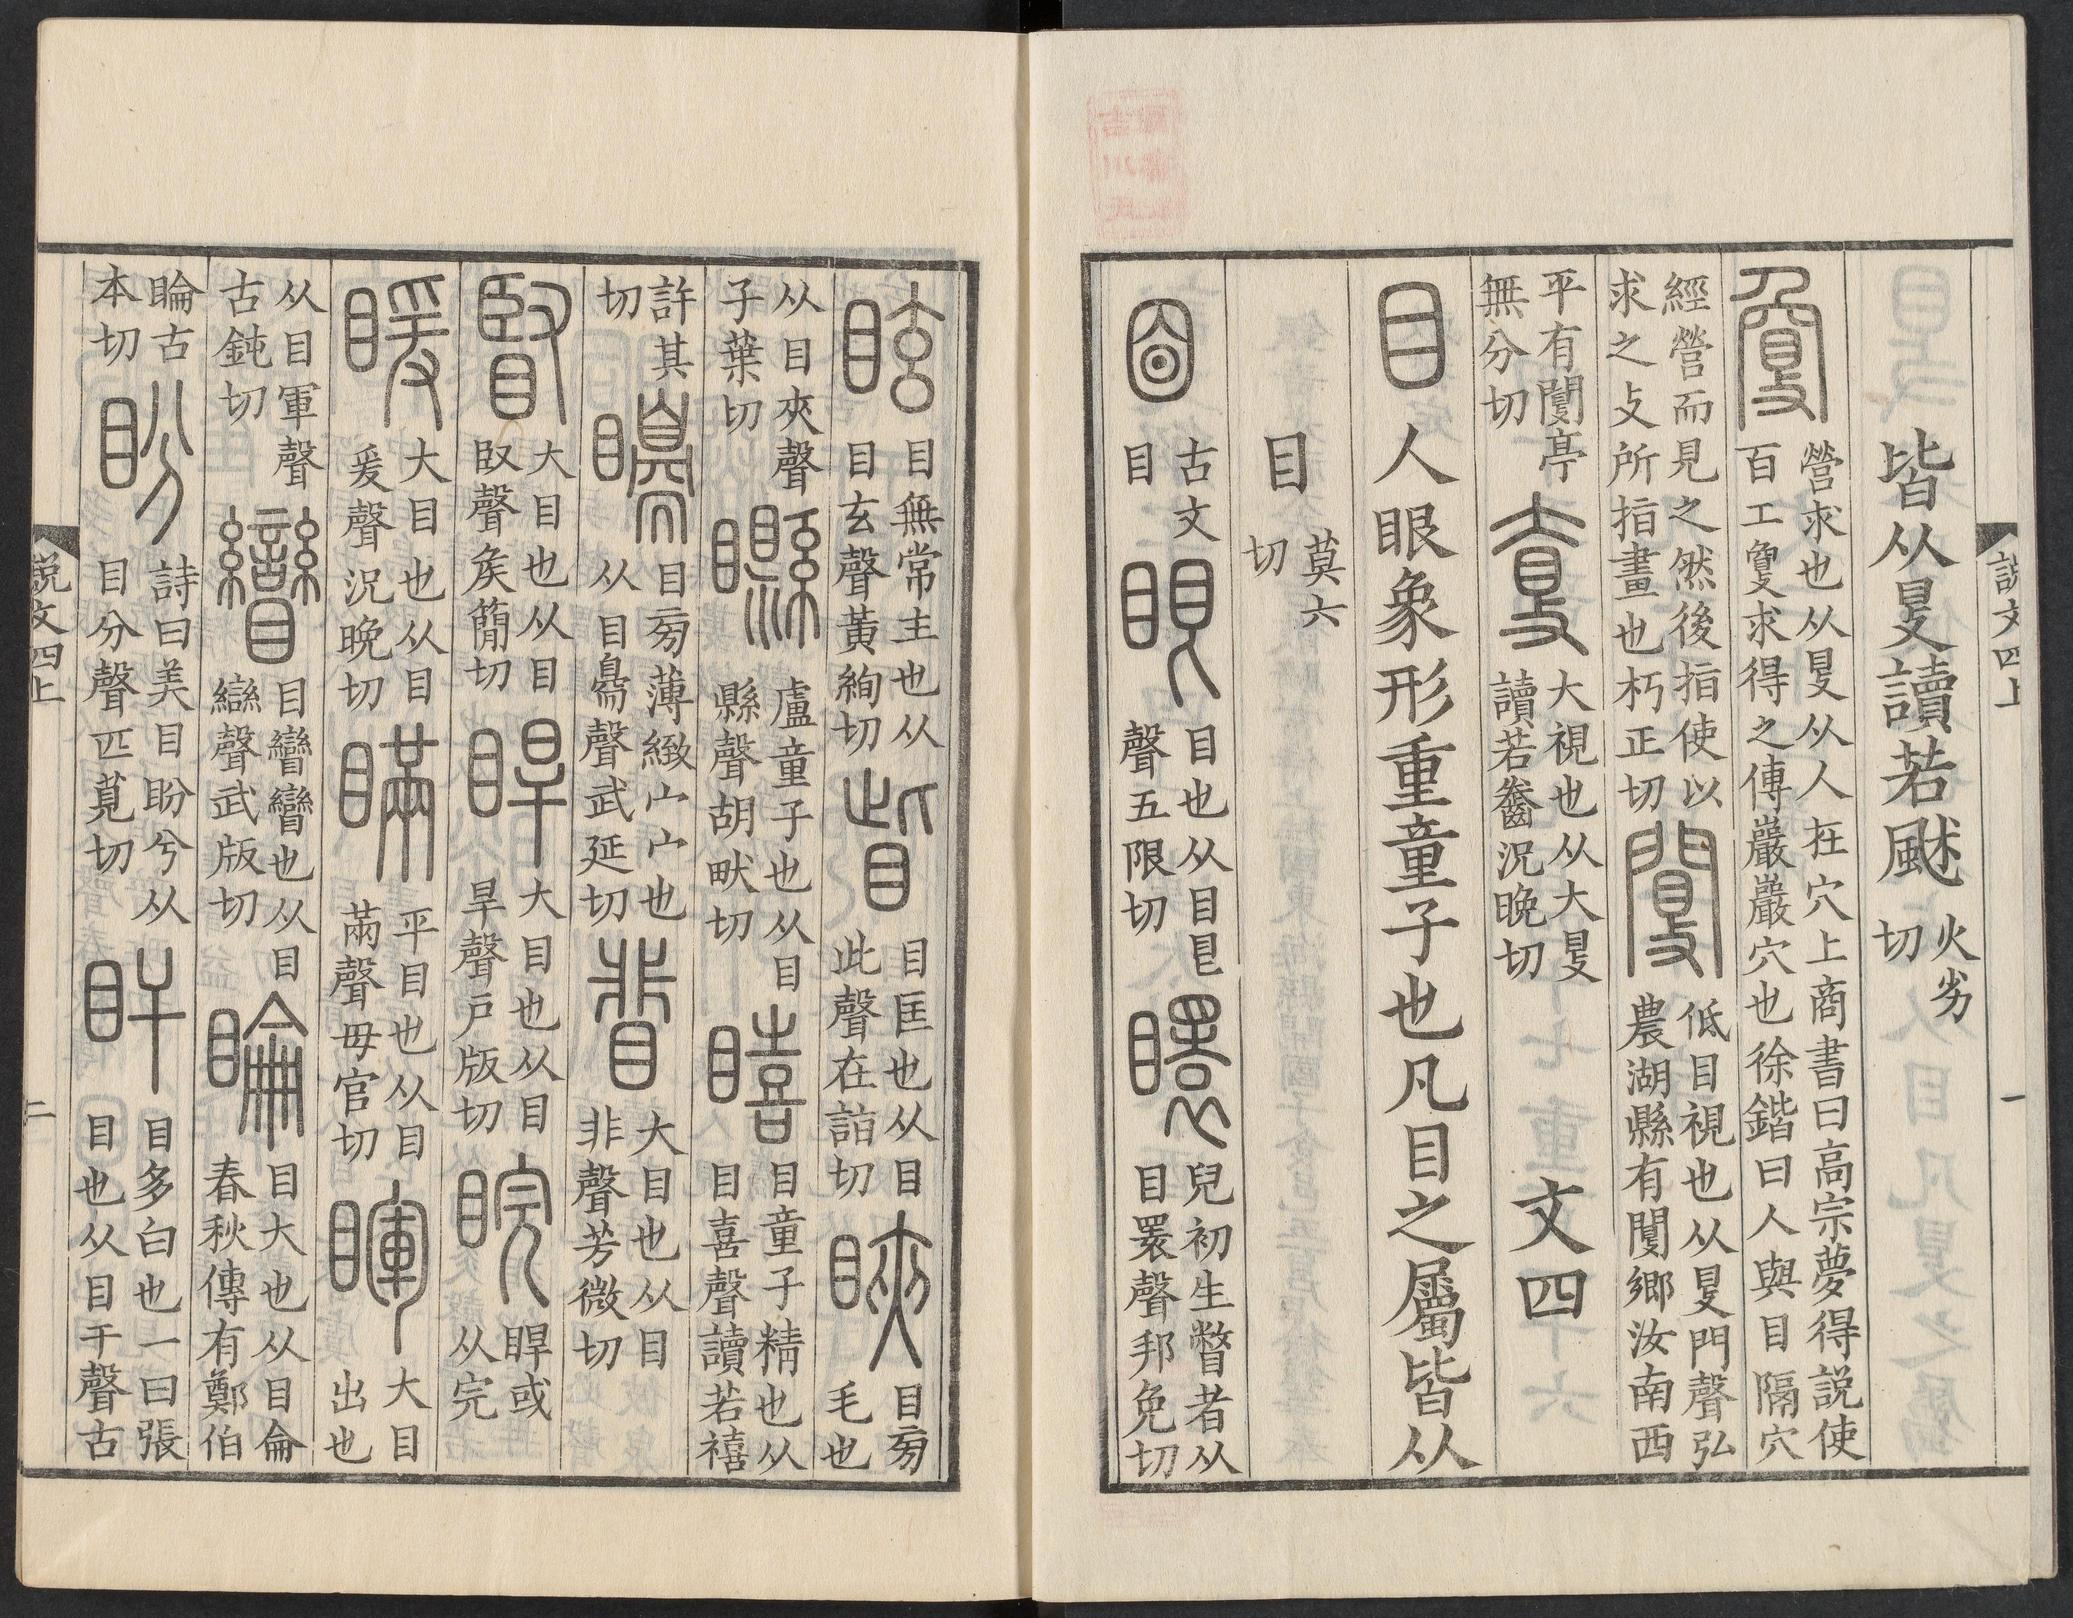 說文四上
一
皆从𥄎讀若颰火劣切
敻營求也从𥄎从人在穴上商書曰高宗夢得說使百工敻求得之傅巖巖穴也徐鍇曰人與目隔穴
經營而見之然後指使以求之攴所指畫也朽正切
閺低目視也从𥄎門聲弘農湖縣有閺鄉汝南西
平有閺亭無分切
𡘲大視也从大𥄎讀若𪘲況晚切
文四
目人眼象形重童子也凡目之屬皆从
目莫六切
古文目
眼目也从目㫐聲五限切
瞏兒初生瞥者从目瞏聲邦免切
眩目無常主也从目玄聲黃絢切
眥目匡也从目此聲在詣切
䀹目旁毛也
从目夾聲子葉切
矊盧童子也从目縣聲胡畎切
瞦目童子精也从目喜聲讀若禧
許其切
矏目旁薄緻宀宀也从目臱聲武延切
䀟大目也从目非聲芳微切
䁂大目也从目臤聲矦簡切
睅大目也从目旱聲戶版切
睆睅或从完
暖大目也从目爰聲況晚切
瞞平目也从目㒼聲毋官切
暉大目出也
从目軍聲古鈍切
矕目矕矕也从目䜌聲武版切
睔目大也从目侖春秋傳有鄭伯
睔古本切
盼詩曰美目盼兮从目分聲匹莧切
盱目多白也一曰張目也从目干聲古
說文四上
二